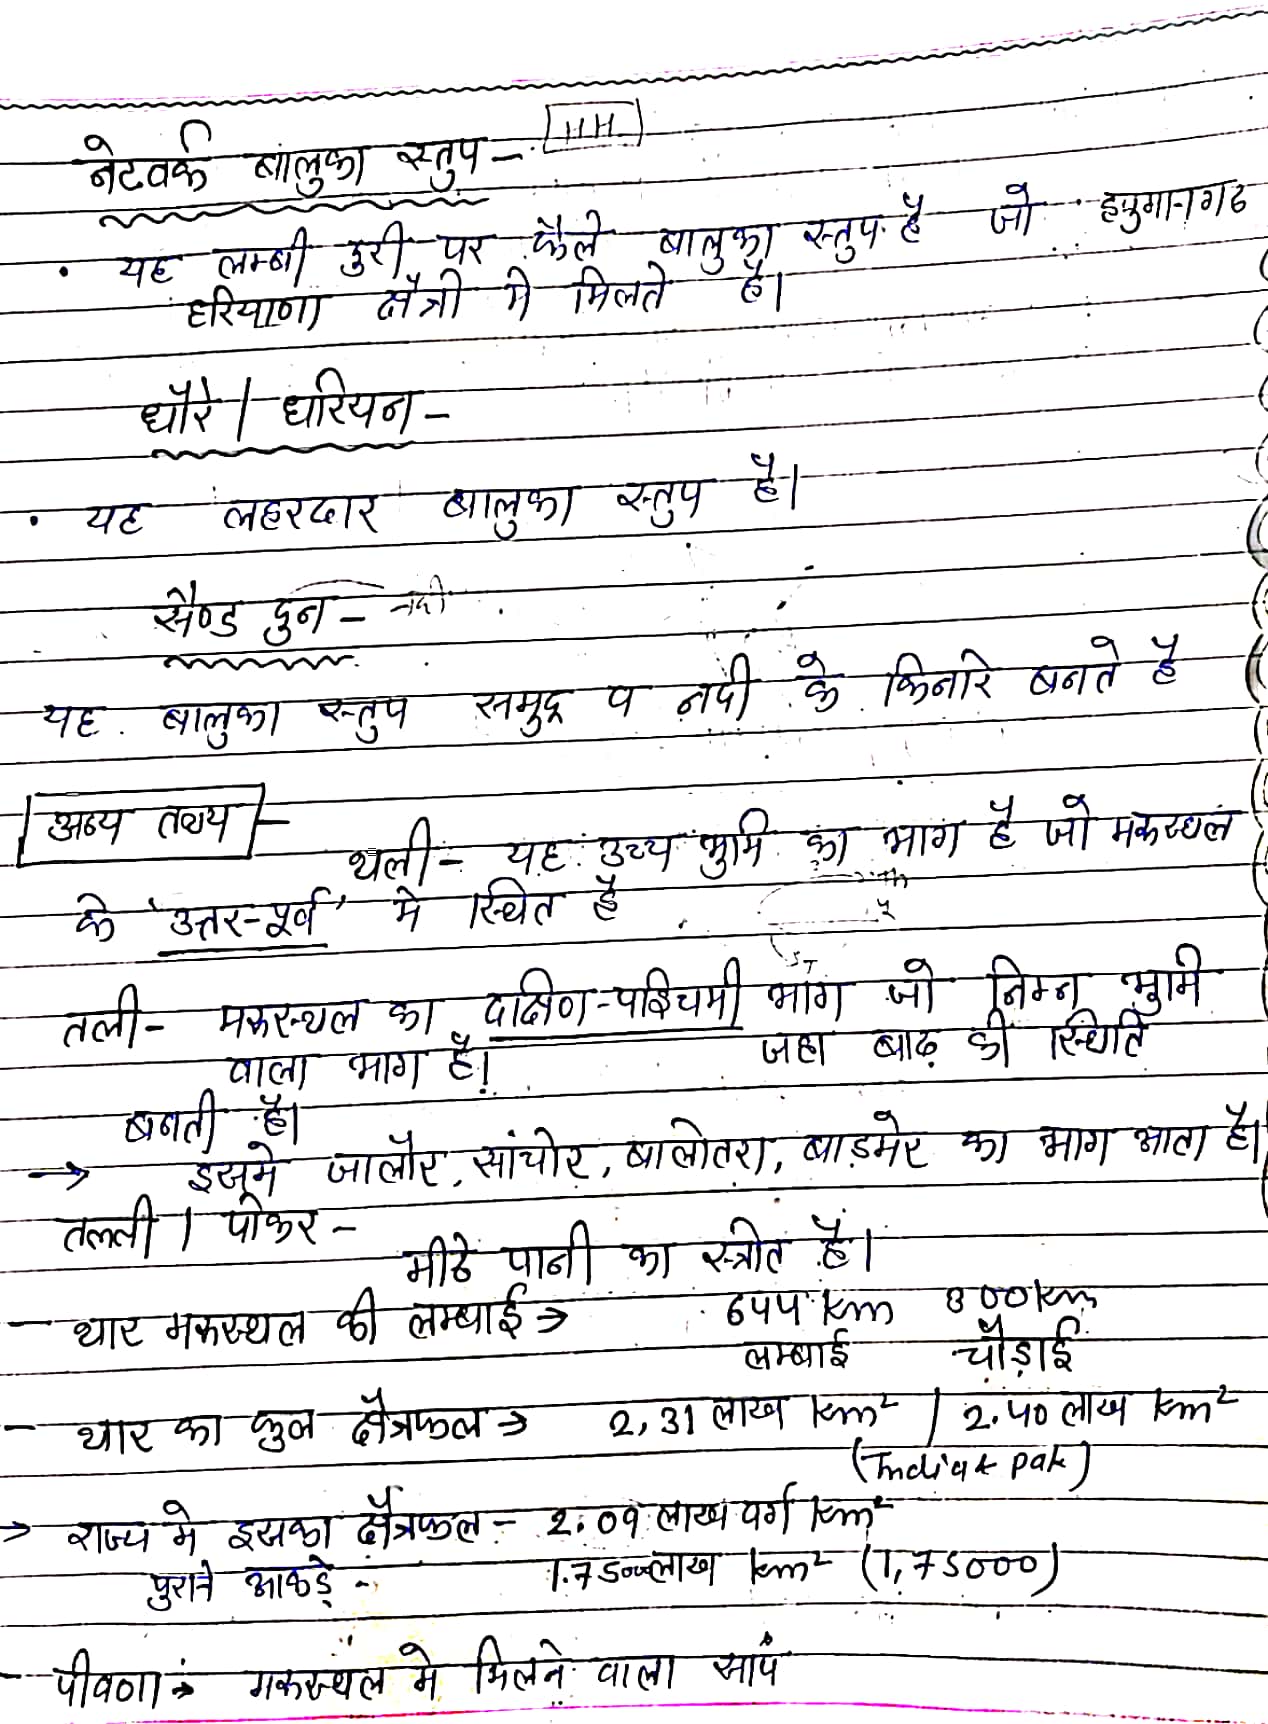 नेटवर्क बालुका स्तुप -
• यह लम्बी दुरी पर फैले बालुका स्तुप है जो हनुमानगढ
हरियाणा क्षैत्रो मे मिलते है।
धौरे / धरियन -
• यह लहरदार बालुका स्तुप है।
सैण्ड दुन - नदी
यह बालुका स्तुप समुद्र व नदी के किनारे बनते है
अन्य तथ्य -
थली - यह उच्च भुमि का भाग है जो मरूस्थल
के 'उत्तर-पूर्व' मे स्थित है
तली - मरूस्थल का दक्षिण-पश्चिमी भाग जो निम्न भुमि
वाला भाग है। जहा बाढ़ की स्थिति
बनती है।
→ इसमे जालौर, सांचोर, बालोतरा, बाड़मेर का भाग आता है।
तल्ली / पोकर -
मीठे पानी का स्त्रोत है।
- थार मरूस्थल की लम्बाई → 644 km 300 km
लम्बाई चौड़ाई
- थार का कुल क्षैत्रफल → 2,31 लाख km² / 2.40 लाख km²
(India & pak)
→ राज्य मे इसका क्षैत्रफल - 2.09 लाख वर्ग km²
पुराने आकड़े - 1.75000लाख km² (1,75000)
- पीवणा → मरूस्थल मे मिलने वाला सांप